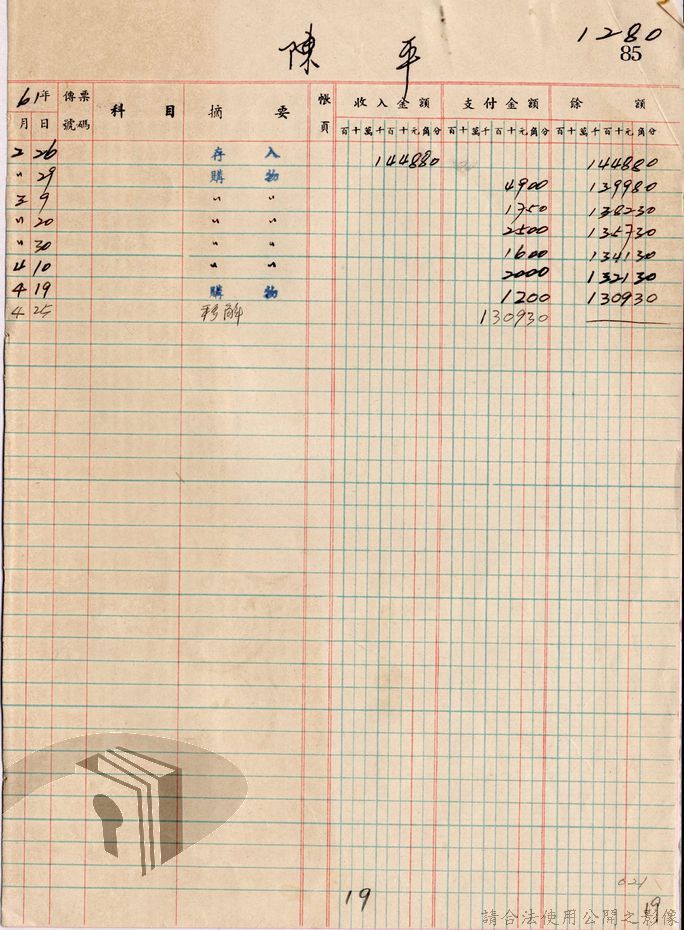 1280
陳 平
85
61年 傳票號碼 科目 摘要 帳頁 收入金額 支付金額 餘額
月 日 百十萬千百十元角分 百十萬千百十元角分 百十萬千百十元角分
2 26 存入 144880 144880
〃 29 購物 4900 139980
3 9 〃 〃 1750 138230
〃 20 〃 〃 2500 135730
〃 30 〃 〃 1600 134130
4 10 〃 〃 2000 132130
4 19 購物 1200 130930
4 25 移解 130930
621
19
19
請合法使用公開之影像